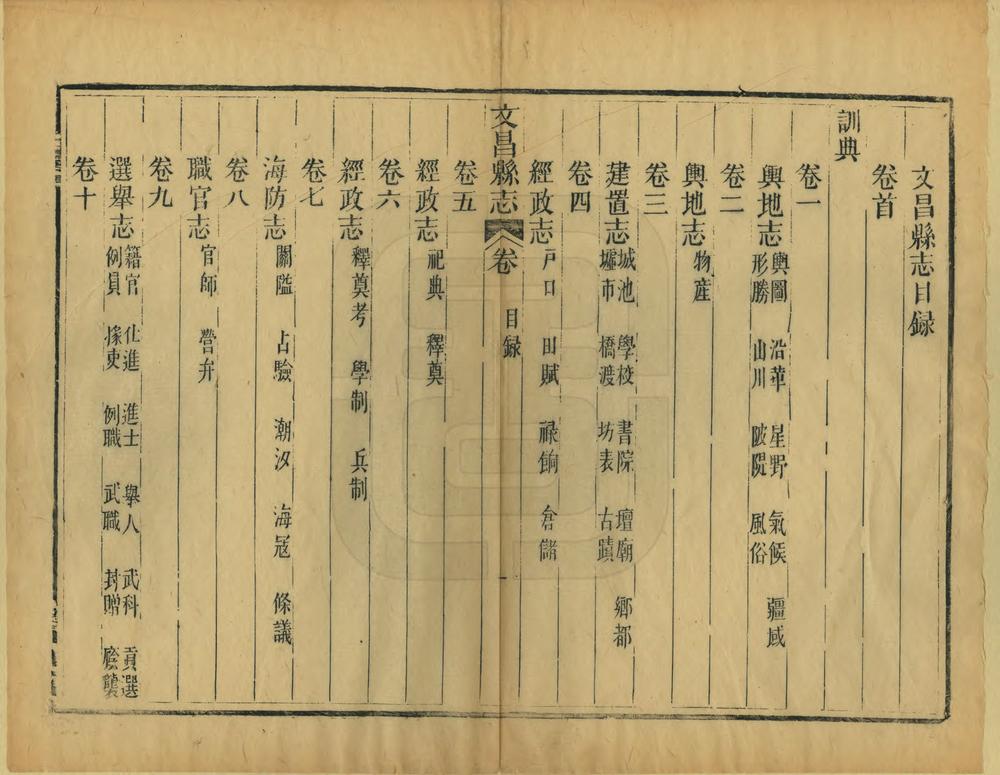 文昌縣志目録
卷首
訓典
卷一
輿地志 輿圖 沿革 星野 氣候 疆域
形勝 山川 陂隄 風俗
卷二
輿地志 物産
卷三
建置志 城池 學校 書院 壇廟 鄉都
墟市 橋渡 坊表 古蹟
卷四
經政志 戸口 田賦 禄餉 倉儲
文昌縣志 卷 目録 一
卷五
經政志 祀典 釋奠
卷六
經政志 釋奠考 學制 兵制
卷七
海防志 關隘 占驗 潮汐 海寇 條議
卷八
職官志 官師 營弁
卷九
選舉志 籍官 仕進 進士 舉人 武科 貢選
例員 掾吏 例職 武職 封贈 廕襲
卷十